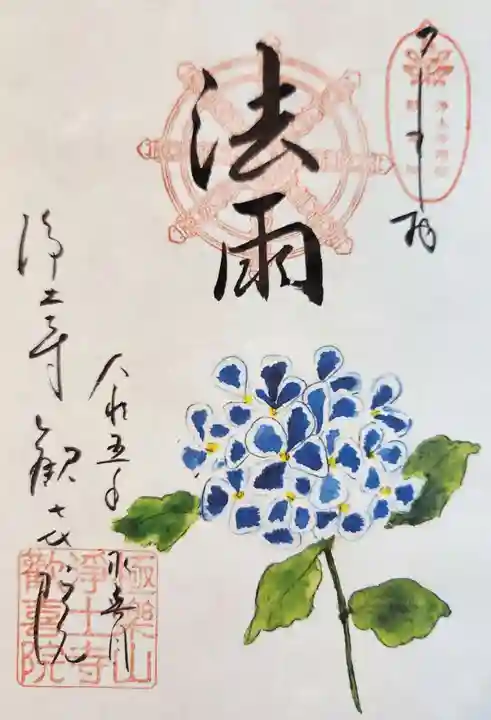 法雨
令和五年
水無月
浄土寺
歓喜院
極樂山
淨土寺
歡喜院